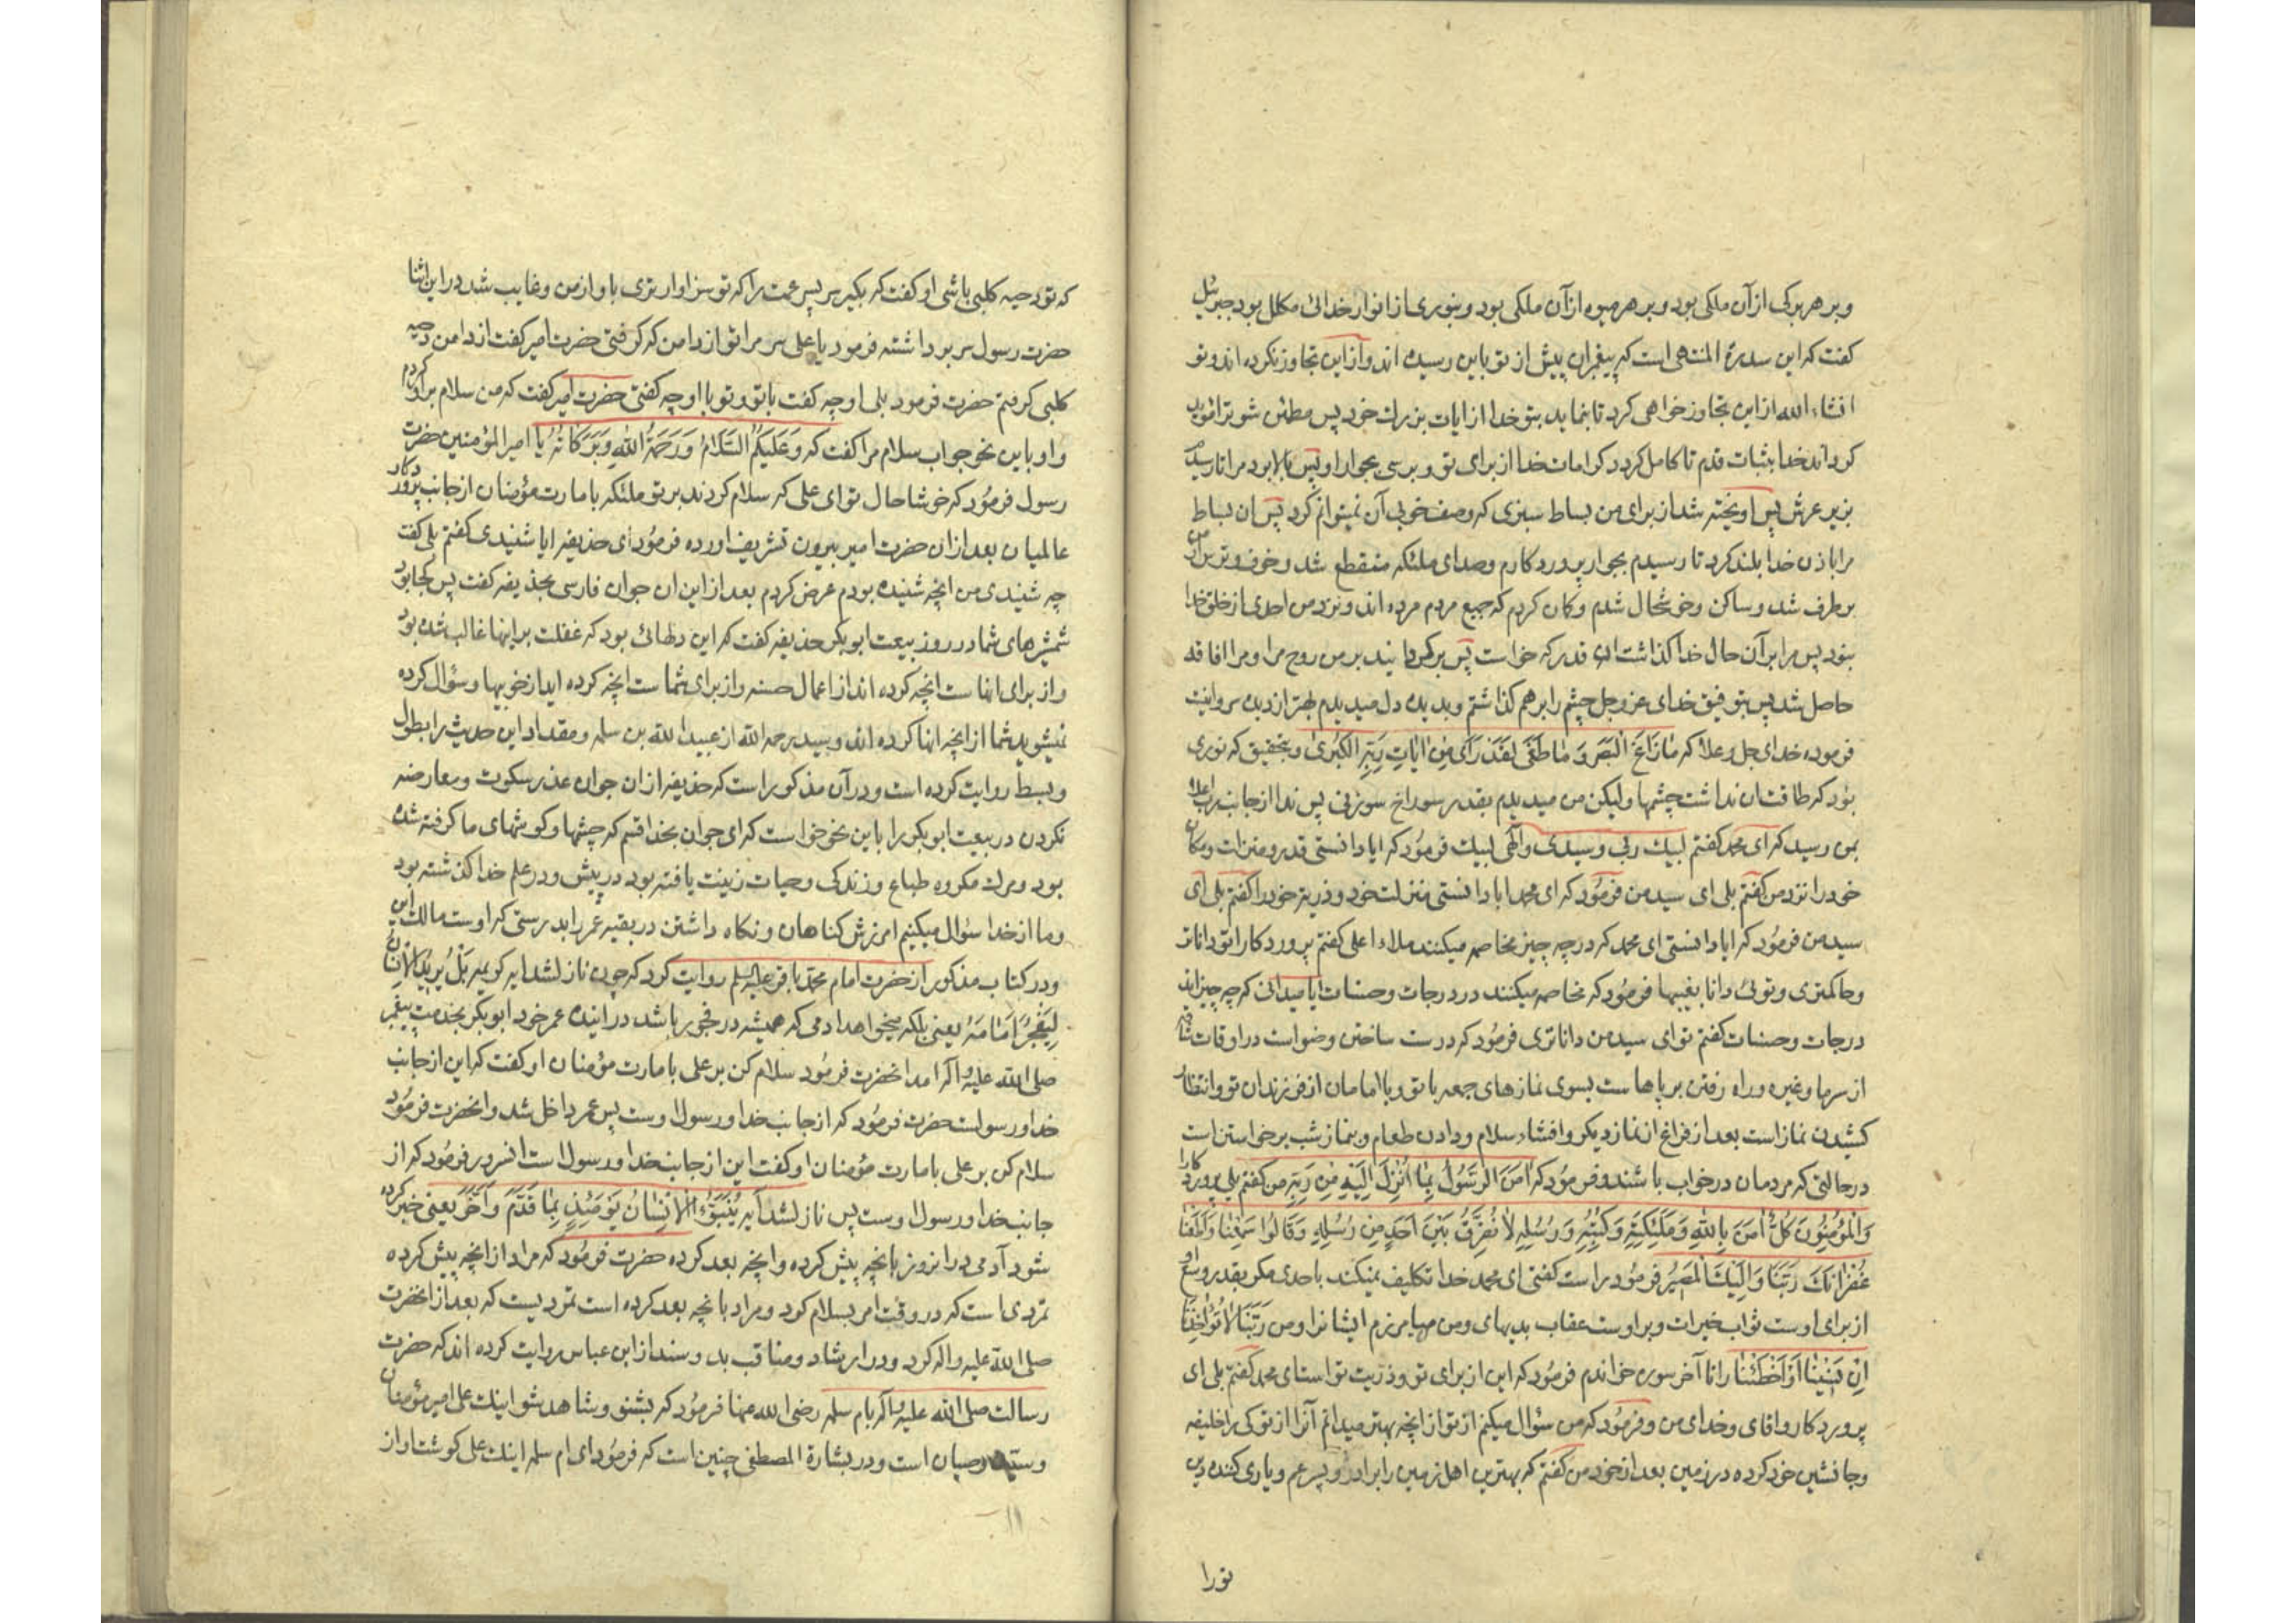 و بر هر برکی از آن ملکی بود و بر هر میوه از آن ملکی بود و بنوری از انوار خدائی مکلل بود جبرئیل
کفت که این سدرة المنتهی است که پیغمبران پیش از تو باین رسیده اند و از این تجاوز نکرده اند و تو
انشاء الله از این تجاوز خواهی کرد تا بنماید بتو خدا از ایات بزرك خود پس مطمئن شو ترا مؤید
کرداند خدا بثبات قدم تا کامل کردد کرامات خدا از برای تو و برسی بجوار او پس بالا برد مرا تا رسیدم
بزیر عرش پس اویخته شد از برای من بساط سبزی که وصف خوبی آن نمیتوانم کرد پس ان بساط
مرا باذن خدا بلند کرد تا رسیدم بجوار پروردکارم و صدای ملئکه منقطع شد و خوف و ترس از من
بر طرف شد و ساکن و خوشحال شدم و کمان کردم که جمیع مردم مرده اند و نزد من احدی از خلق خدا
نبود پس مرا بر آن حال خدا کذاشت ان قدر که خواست پس برکردانید بر من روح مرا و مرا افاقه
حاصل شد پس بتوفیق خدای عز و جل چشم را بر هم کذاشتم و بدیده دل میدیدم بهتر از دیده سر و اینست
فرموده خدای جل و علا که مَا زَاغَ الْبَصَرُ وَ مَا طَغَی لَقَدْ رَآی مِنْ ایَاتِ رَبِّهِ الْکُبْرَی و بتحقیق که نوری
بود که طاقت ان نداشت چشمها ولیکن من میدیدم بقدر سوراخ سوزنی پس ندا از جانب رب اعلا
بمن رسید که ای محمد کفتم لبیك ربی و سیدی و الهی لبیك فرمود که ایا دانستی قدر و منزلت و مکان
خود را نزد من کفتم بلی ای سید من فرمود که ای محمد ایا دانستی منزلت خود و ذریه خود را کفتم بلی ای
سید من فرمود که ایا دانستی ای محمد که در چه چیز مخاصمه میکنند ملاء اعلی کفتم پروردکارا تو داناتر
و حاکمتری و توئی دانا بغیبها فرمود که مخاصمه میکنند در درجات و حسنات ایا میدانی که چه چیز اند
درجات و حسنات کفتم تو ای سید من داناتری فرمود که درست ساختن وضو است در اوقات
از سرما و غیره و راه رفتن بر پاهاست بسوی نمازهای جمعه با تو و با امامان از فرزندان تو و انتظار
کشیدن نماز است بعد از فراغ از نماز دیکر و افشاء سلام و دادن طعام و بنماز شب برخاستن است
در حالتی که مردمان در خواب باشند و فرمود که اَمَنَ الرَّسُولُ بِمَا اُنْزِلَ اِلَیْهِ مِنْ رَبِّهِ من کفتم بلی پروردکارا
وَ الْمُؤمِنُونَ کُلٌّ اَمَنَ بِاللهِ وَ مَلَئِکَتِهِ وَ کُتُبِهِ وَ رُسُلِهِ لَا نُفَرِّقُ بَیْنَ اَحَدٍ مِنْ رُسُلِهِ وَ قَالُوا سَمِعْنَا وَ اَطَعْنَا
غُفْرَانَكَ رَبَّنَا وَ اِلَیْكَ الْمَصِیرُ فرمود راست کفتی ای محمد خدا تکلیف نمیکند باحدی مکر بقدر وسع او
از برای اوست ثواب خیرات و بر اوست عقاب بدیهای و من مهیا می‌زم ایشانرا و من رَبَّنَا لَا تُؤَاخِذْنَا
اِنْ نَسِینَا اَوْ اَخْطَئْنَا را تا آخر سوره خواندم فرمود که این از برای تو و ذریت تو است ای محمد کفتم بلی ای
پروردکار و اقای و خدای من و فرمود که من سؤال میکنم از تو از انچه بهتر میدانم آنرا از تو کی را خلیفه
و جانشین خود کرده در زمین بعد از خود من کفتم که بهترین اهل زمین را برادر و پسر عم و یاری کننده دین
تورا
که تو دحیه کلبی باشی او کفت که بکیر سر پسر عمت را که تو سزاوار تری باو از من و غایب شد در این اثنا
حضرت رسول سر برداشته فرمود یا علی سر مرا تو از دامن که کرفتی حضرت امیر کفت از دامن دحیه
کلبی کرفتم حضرت فرمود بلی او چه کفت با تو و تو با او چه کفتی حضرت امیر کفت که من سلام بر او کردم
و او باین نحو جواب سلام مرا کفت که وَ عَلَیْکُمُ السَّلَامُ وَ رَحْمَةُ اللهِ وَ بَرَکَاتُهُ یا امیر المؤمنین حضرت
رسول فرمود که خوشا حال تو ای علی که سلام کردند بر تو ملئکه بامارت مؤمنان از جانب پروردکار
عالمیان بعد از ان حضرت امیر بیرون تشریف اورده فرمود ای حذیفه ایا شنیدی کفتم بلی کفت
چه شنیدی من انچه شنیده بودم عرض کردم بعد از این ان جوان فارسی بحذیفه کفت پس کجا بود
شمشیرهای شما در روز بیعت ابوبکر حذیفه کفت که این دلهائی بود که غفلت بر اینها غالب شده بود
و از برای انهاست انچه کرده اند از اعمال حسنه و از برای شماست انچه کرده اید از خوبیها و سؤال کرده
نمیشوید شما از انچه انها کرده اند و سید رحمه الله از عبید الله بن سلمه و مقداد این حدیث را بطول
و بسط روایت کرده است و در آن مذکور است که حذیفه از ان جوان عذر سکوت و معارضه
نکردن در بیعت ابوبکر را باین نحو خواست که ای جوان بخدا قسم که چشمها و کوشهای ما کرفته شده
بود و مرك مکروه طباع و زندکی و حیات زینت یافته بود در پیش و در علم خدا کذشته بود
و ما از خدا سؤال میکنیم امرزش کناهان و نکاه داشتن در بقیه عمر را بدرستی که اوست مالك این
و در کتاب مذکور از حضرت امام محمد باقر علیه السلم روایت کرد که چون نازل شد ایه کریمه بَلْ یُرِیدُ الْاِنْسَانُ
لِیَفْجُرَ اَمَامَهُ یعنی بلکه میخواهد ادمی که همیشه در فجور باشد در اینده عمر خود ابوبکر بخدمت پیغمبر
صلی الله علیه و اله امد انحضرت فرمود سلام کن بر علی بامارت مؤمنان او کفت که این از جانب
خدا و رسولست حضرت فرمود که از جانب خدا و رسول اوست پس عمر داخل شد و انحضرت فرمود
سلام کن بر علی بامارت مؤمنان او کفت این از جانب خدا و رسول است انسرور فرمود که از
جانب خدا و رسول اوست پس نازل شد آیه یُنَبَّؤُا الْاِنْسَانُ یَوْمَئِذٍ بِمَا قَدَّمَ وَ اَخَّرَ یعنی خبر کرده
شود آدمی در انروز بانچه پیش کرده و انچه بعد کرده حضرت فرمود که مراد از انچه پیش کرده
تمردی است که در وقت امر بسلام کرد و مراد بانچه بعد کرده است تمردیست که بعد از انحضرت
صلی الله علیه و اله کرد و در ارشاد و مناقب بدو سند از ابن عباس روایت کرده اند که حضرت
رسالت صلی الله علیه و اله بام سلمه رضی الله عنها فرمود که بشنو و شاهد شو اینك علی امیر مؤمنان
و سید وصیان است و در بشارة المصطفی چنین است که فرمود ای ام سلمه اینك علی کوشت او از
۱۱